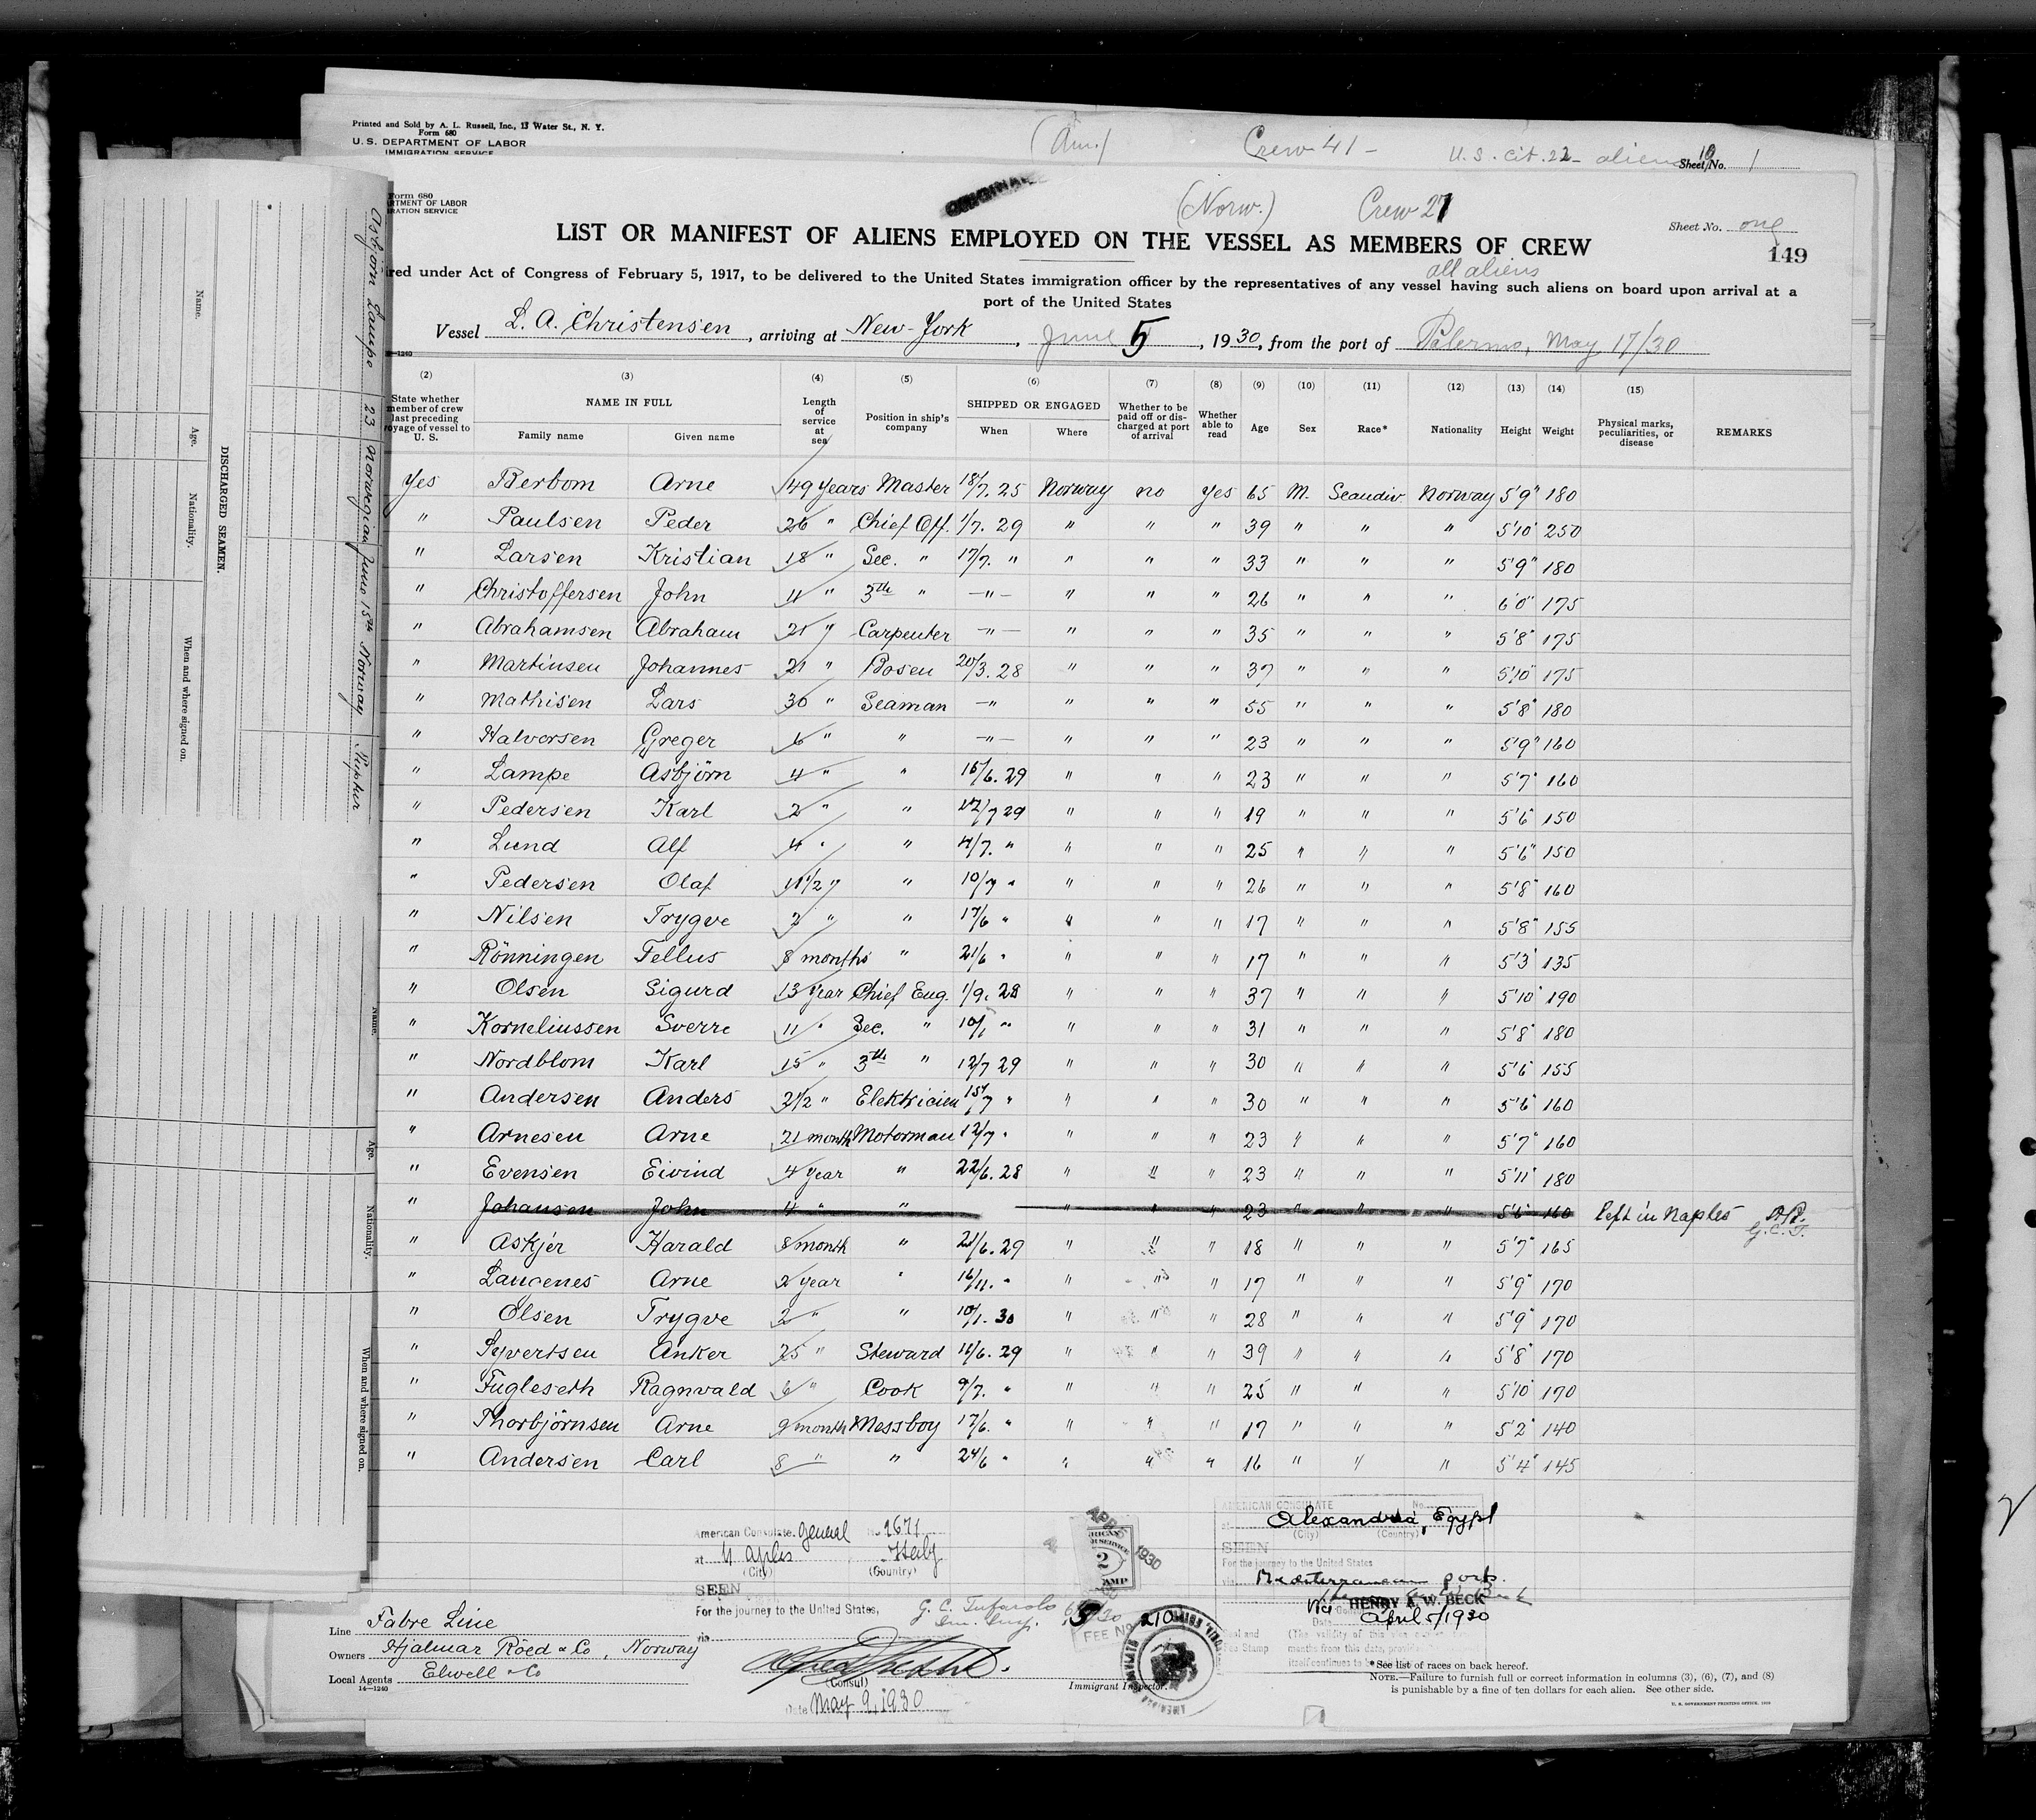 Printed and Sold by A. L. Russell, Inc., 13 Water St., N. Y.
Form 680
U. S. DEPARTMENT OF LABOR
IMMIGRATION SERVICE
(Am.) Crew 41 - U. S. cit. 22 - aliens 19 Sheet No. 1
Form 680
RTMENT OF LABOR
RATION SERVICE
ORIGINAL
(Norw.) Crew 27
Sheet No. one
LIST OR MANIFEST OF ALIENS EMPLOYED ON THE VESSEL AS MEMBERS OF CREW
149
all aliens
red under Act of Congress of February 5, 1917, to be delivered to the United States immigration officer by the representatives of any vessel having such aliens on board upon arrival at a
port of the United States
Vessel L. A. Christensen, arriving at New-York, June 5, 1930, from the port of Palermo, May 17/30
(2) (3) (4) (5) (6) (7) (8) (9) (10) (11) (12) (13) (14) (15)
State whether member of crew last preceding voyage of vessel to U. S. NAME IN FULL Family name Given name Length of service at sea Position in ship's company SHIPPED OR ENGAGED When Where Whether to be paid off or discharged at port of arrival Whether able to read Age Sex Race* Nationality Height Weight Physical marks, peculiarities, or disease REMARKS
Yes Berbom Arne 49 years Master 18/7. 25 Norway no Yes 65 M. Scandiv. Norway 5'9" 180
" Paulsen Peder 26 " Chief Off. 1/7. 29 " " " 39 " " " 5'10" 250
" Larsen Kristian 18 " Sec. " 17/7. " " " " 33 " " " 5'9" 180
" Christoffersen John 11 " 3th " —"— " " " 26 " " " 6'0" 175
" Abrahamsen Abraham 21 " Carpenter —"— " " " 35 " " " 5'8" 175
" Martinsen Johannes 21 " Bosen 20/3. 28 " " " 37 " " " 5'10" 175
" Mathisen Lars 30 " Seaman —" " " " 55 " " " 5'8" 180
" Halvorsen Greger 6 " " —"— " " " 23 " " " 5'9" 160
" Lampe Asbjörn 4 " " 15/6. 29 " " " 23 " " " 5'7" 160
" Pedersen Karl 2 " " 12/7 29 " " " 19 " " " 5'6" 150
" Lund Alf 4 " " 4/7. " " " " 25 " " " 5'6" 150
" Pedersen Olaf 11 1/2 " " 10/7 " " " " 26 " " " 5'8" 160
" Nilsen Trygve 2 " " 17/6 " " " " 17 " " " 5'8" 155
" Rönningen Tellus 8 months " 21/6 " " " " 17 " " " 5'3" 135
" Olsen Sigurd 13 year Chief Eng. 1/9. 28 " " " 37 " " " 5'10" 190
" Korneliussen Sverre 11 " Sec. " 10/1 " " " " 31 " " " 5'8" 180
" Nordblom Karl 15 " 3th " 12/7 29 " " " 30 " " " 5'6" 155
" Andersen Anders 2 1/2 " Elektricien 15/7 " " " " 30 " " " 5'6" 160
" Arnesen Arne 21 month Motorman 12/7 " " " " 23 " " " 5'7" 160
" Evensen Eivind 4 year " 22/6. 28 " " " 23 " " " 5'11" 180
" Johansen John 4 " " " " " 23 " " " 5'6" 160 left in Naples
" Askjer Harald 8 month " 21/6. 29 " " " 18 " " " 5'7" 165
" Laugenes Arne 2 year " 16/11. " " " " 17 " " " 5'9" 170
" Olsen Trygve 2 " " 10/1. 30 " " " 28 " " " 5'9" 170
" Syvertsen Anker 25 " Steward 11/6. 29 " " " 39 " " " 5'8" 170
" Fugleseth Ragnvald 6 " Cook 9/7. " " " " 25 " " " 5'10" 170
" Thorbjörnsen Arne 9 month Messboy 17/6. " " " " 17 " " " 5'2" 140
" Andersen Carl 8 " " 24/6 " " " " 16 " " " 5'4" 145
American Consulate General No. 1671
at Naples Italy
(City) (Country)
SEEN
For the journey to the United States,
via
(Consul)
Date May 9, 1930
G. C. Tufarolo
Imm. Insp.
2
1930
FEE No. 210
Immigrant Inspector.
AMERICAN CONSULATE No.
at Alexandria, Egypt
(City) (Country)
SEEN
For the journey to the United States
via Mediterranean ports
HENRY A. W. BECK
Date April 5/1930
(The validity of this
months from this date, provided
itself continues to be
*See list of races on back hereof.
NOTE.—Failure to furnish full or correct information in columns (3), (6), (7), and (8)
is punishable by a fine of ten dollars for each alien. See other side.
U. S. GOVERNMENT PRINTING OFFICE
Line Fabre Line
Owners Hjalmar Röed & Co, Norway
Local Agents Elwell & Co
14—1240
Asbjörn Laupo 23 Norwegian June 15th Norway Skipker
DISCHARGED SEAMEN.
Name. Age. Nationality. When and where signed on.
Name. Age. Nationality. When and where signed on.